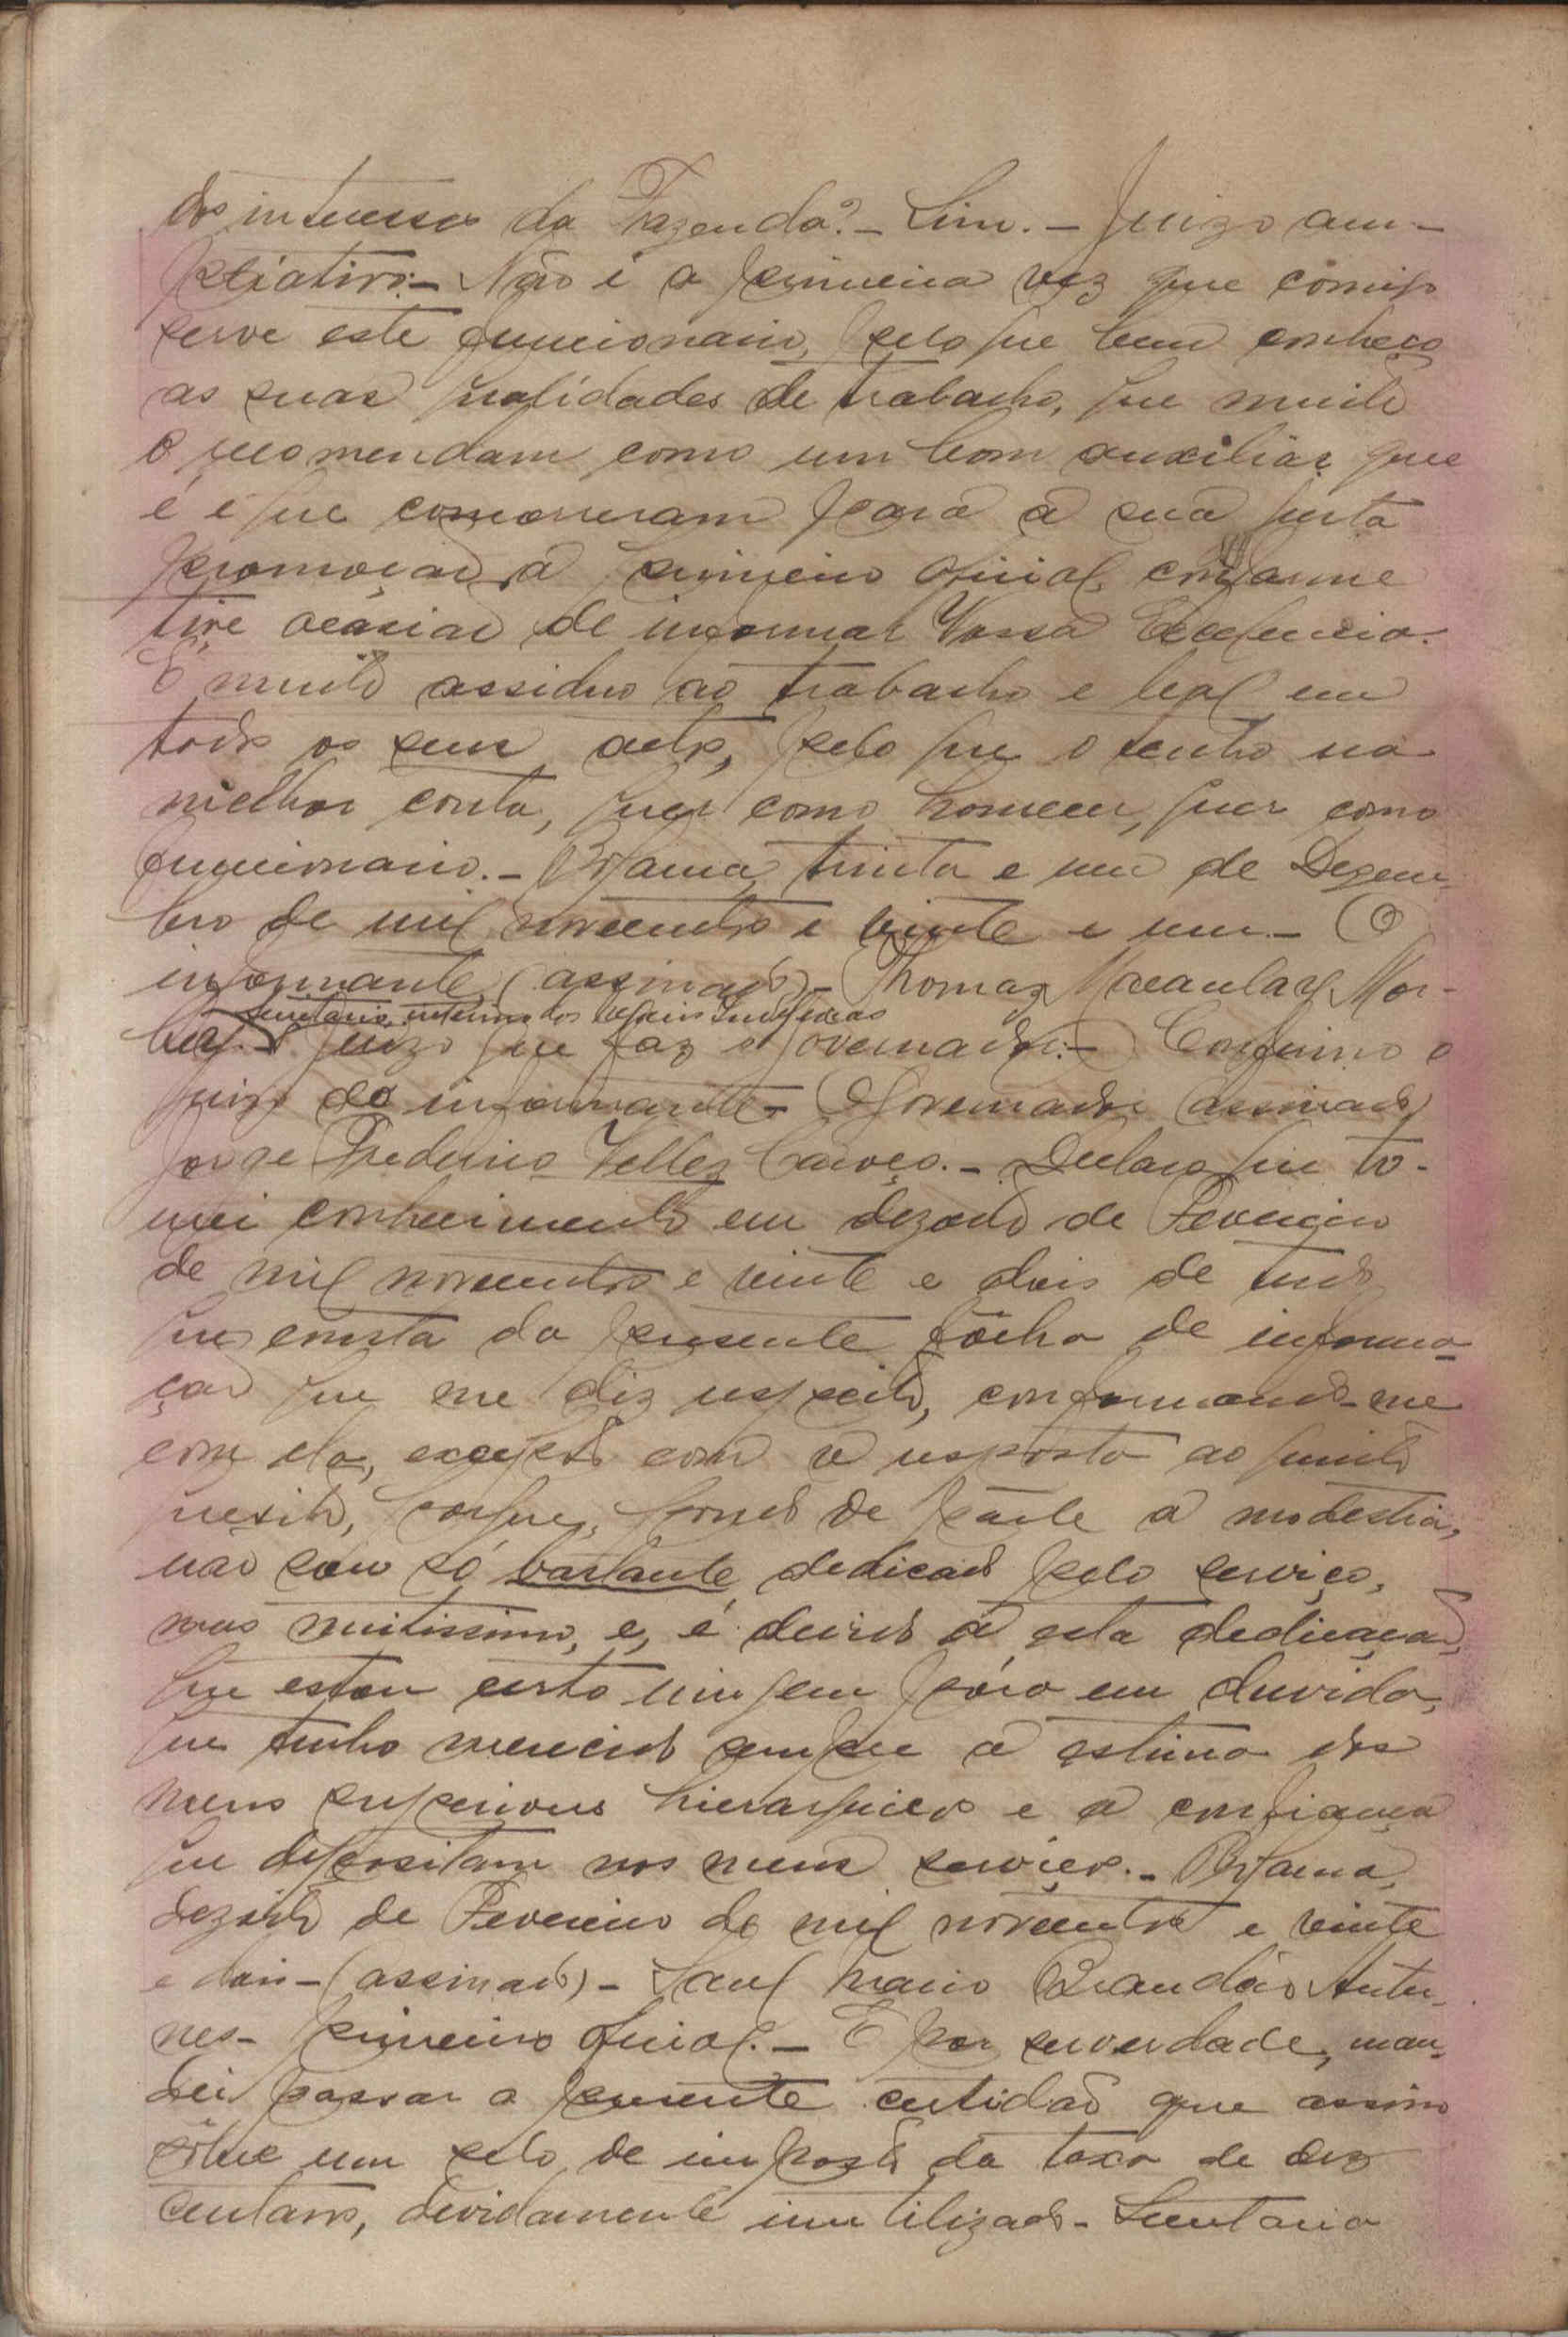 dos interesses da Fazenda? - Sim. - Juizo am-
pliativo: - Não é a primeira vez que comigo
serve este funcionario, pelo que bem conheço
as suas qualidades de trabalho, que muito
o recomendam como um bom auxiliar que
é e que concorreram para a sua justa
promoção a primeiro oficial, conforme
tive ocasião de informar Vossa Excelencia.
É muito assiduo ao trabalho e leal em
todos os seus actos, pelo que o tenho na
melhor conta, quer como homem, quer como
funcionario. - Bolama, trinta e um de Dezem-
bro de mil novecentos e vinte e um - O
informante (assinado) - Thomaz
secretario interino dos Negocios Indigenas
Juizo que faz o Governador: - Confirmo o
juizo do informante - O Governador (assinado)
Jorge Frederico Vellez Caroço. - Declaro que to-
mei conhecimento em dezoito de Fevereiro
de mil novecentos e vinte e dois de tudo
que consta da presente fôlha de informa-
ção que me diz respeito, conformando-me
com ela, excepto com a resposta ao quinto
quesito, porque, pondo de parte a modestia,
não sou só bastante dedicado pelo serviço,
mas muitissimo, e, é devido a esta dedicação,
que estou certo ninguem porá em duvida,
que tenho merecido sempre a estima dos
meus superiores hierarquicos e a confiança
que depositam nos meus serviços. - Bolama,
dezoito de Fevereiro de mil novecentos e vinte
e dois - (assinado) - Saul Mario Brandão Antu-
nes - primeiro oficial. - E por ser verdade, man-
dei passar a presente certidão que assino
sôbre um selo de imposto da taxa de dez
centavos, devidamente inutilizado - Secretaria